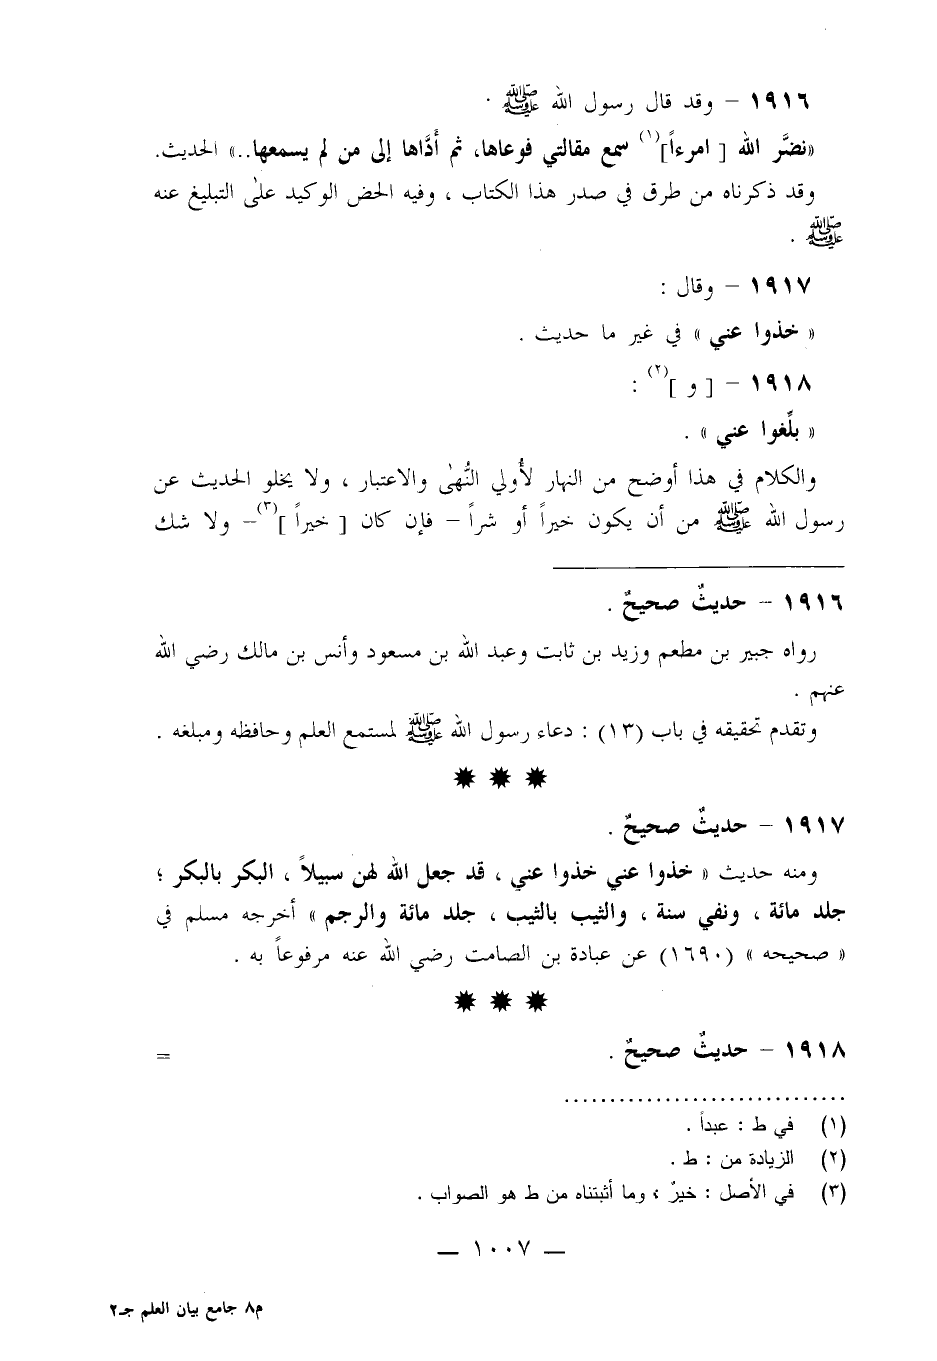 ١٩١٦ – وقد قال رسول الله ﷺ .
«نضَّر الله [ امرءاً](١) سمع مقالتي فوعاها، ثم أدَّاها إلى من لم يسمعها..» الحديث.
وقد ذكرناه من طرق في صدر هذا الكتاب ، وفيه الحض الوكيد علىٰ التبليغ عنه
ﷺ .
١٩١٧ – وقال :
« خذوا عني » في غير ما حديث .
١٩١٨ – [ و ](٢) :
« بلِّغوا عني » .
والكلام في هذا أوضح من النهار لأُولي النُّهىٰ والاعتبار ، ولا يخلو الحديث عن
رسول الله ﷺ من أن يكون خيراً أو شراً – فإن كان [ خيراً ](٣)– ولا شك
١٩١٦ – حديثٌ صحيحٌ .
رواه جبير بن مطعم وزيد بن ثابت وعبد الله بن مسعود وأنس بن مالك رضي الله
عنهم .
وتقدم تحقيقه في باب (١٣) : دعاء رسول الله ﷺ لمستمع العلم وحافظه ومبلغه .
✸ ✸ ✸
١٩١٧ – حديثٌ صحيحٌ .
ومنه حديث « خذوا عني خذوا عني ، قد جعل الله لهن سبيلاً ، البكر بالبكر ؛
جلد مائة ، ونفي سنة ، والثيب بالثيب ، جلد مائة والرجم » أخرجه مسلم في
« صحيحه » (١٦٩٠) عن عبادة بن الصامت رضي الله عنه مرفوعاً به .
✸ ✸ ✸
١٩١٨ – حديثٌ صحيحٌ . =
...............................
(١) في ط : عبداً .
(٢) الزيادة من : ط .
(٣) في الأصل : خيرٌ ؛ وما أثبتناه من ط هو الصواب .
— ١٠٠٧ —
م٨ جامع بيان العلم جـ٢